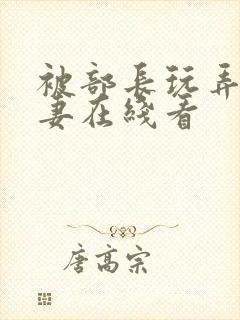 被部长玩弄
妻在线看
唐高宗